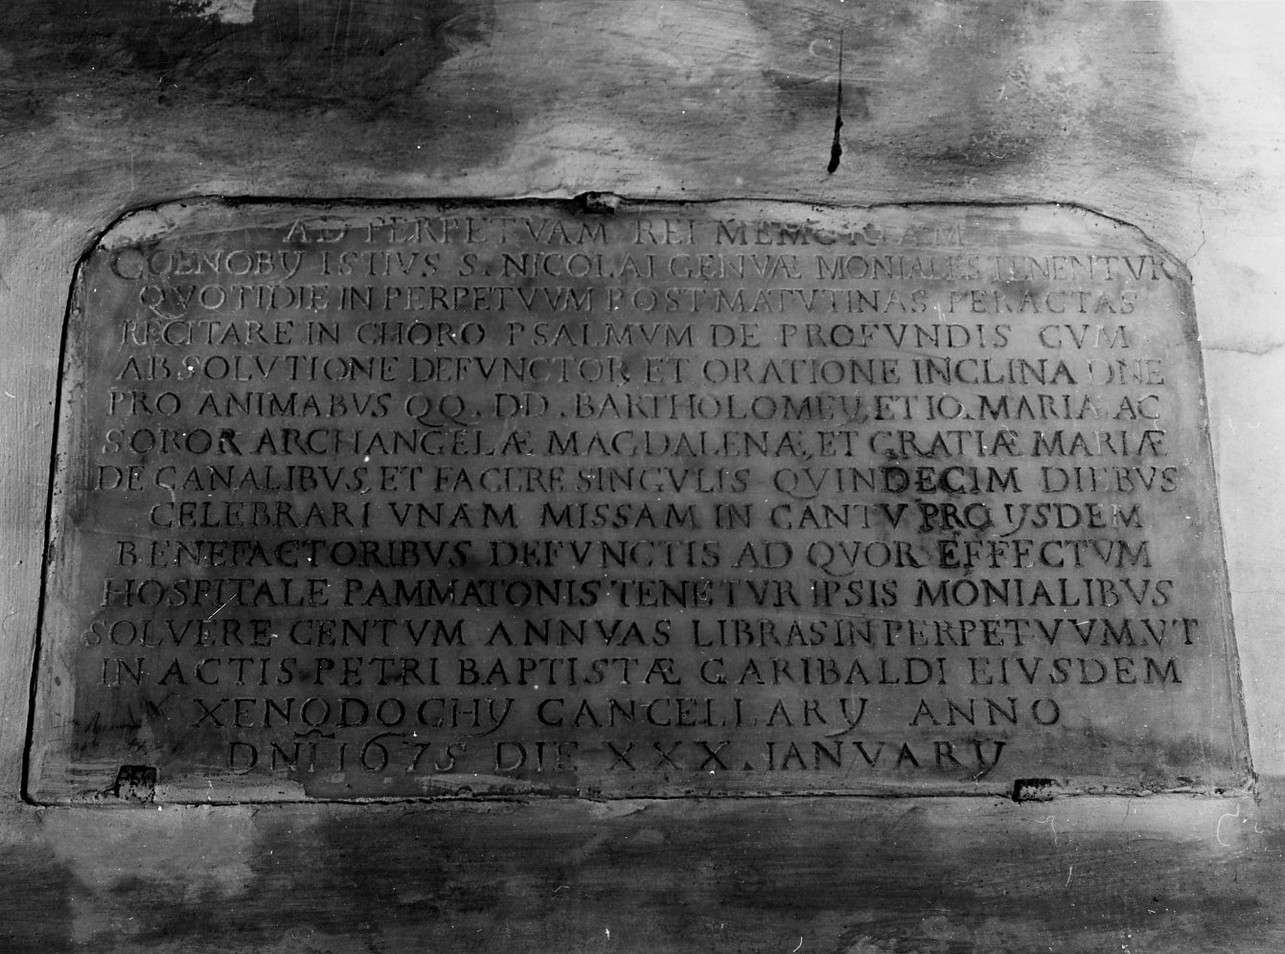 AD PERPETVAM REI MEMORIAM
COENOBY ISTIVS S. NICOLAI GENVÆ MONIALES TENENTVR
QVOTIDIE IN PERPETVVM POST MATVTINAS PERACTAS
RECITARE IN CHORO PSALMVM DE PROFVNDIS CVM
ABSOLVTIONE DEFVNCTOR, ET ORATIONE INCLINA DNE
PRO ANIMABVS QQ. DD. BARTHOLOMEI ET IO. MARIA, AC
SORO. ARCHANGELÆ MAGDALENÆ, ET GRATIÆ MARIÆ
DE CANALIBVS, ET FACERE SINGVLIS QVINDECIM DIEBVS
CELEBRARI VNAM MISSAM IN CANTV PRO IJSDEM
BENEFACTORIBVS DEFVNCTIS AD QVOR EFFECTVM
HOSPITALE PAMMATONIS TENETVR IPSIS MONIALIBVS
SOLVERE CENTVM ANNVAS LIBRAS IN PERPETVVM, VT
IN ACTIS PETRI BAPTISTÆ GARIBALDI EIVSDEM
XENODOCHY CANCELLARY ANNO
DNI 1675 DIE XXX. IANVARY